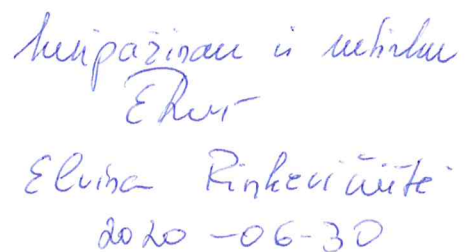 Susipažinau ir sutinku
Elvina Rinkevičiūtė
2020-06-30